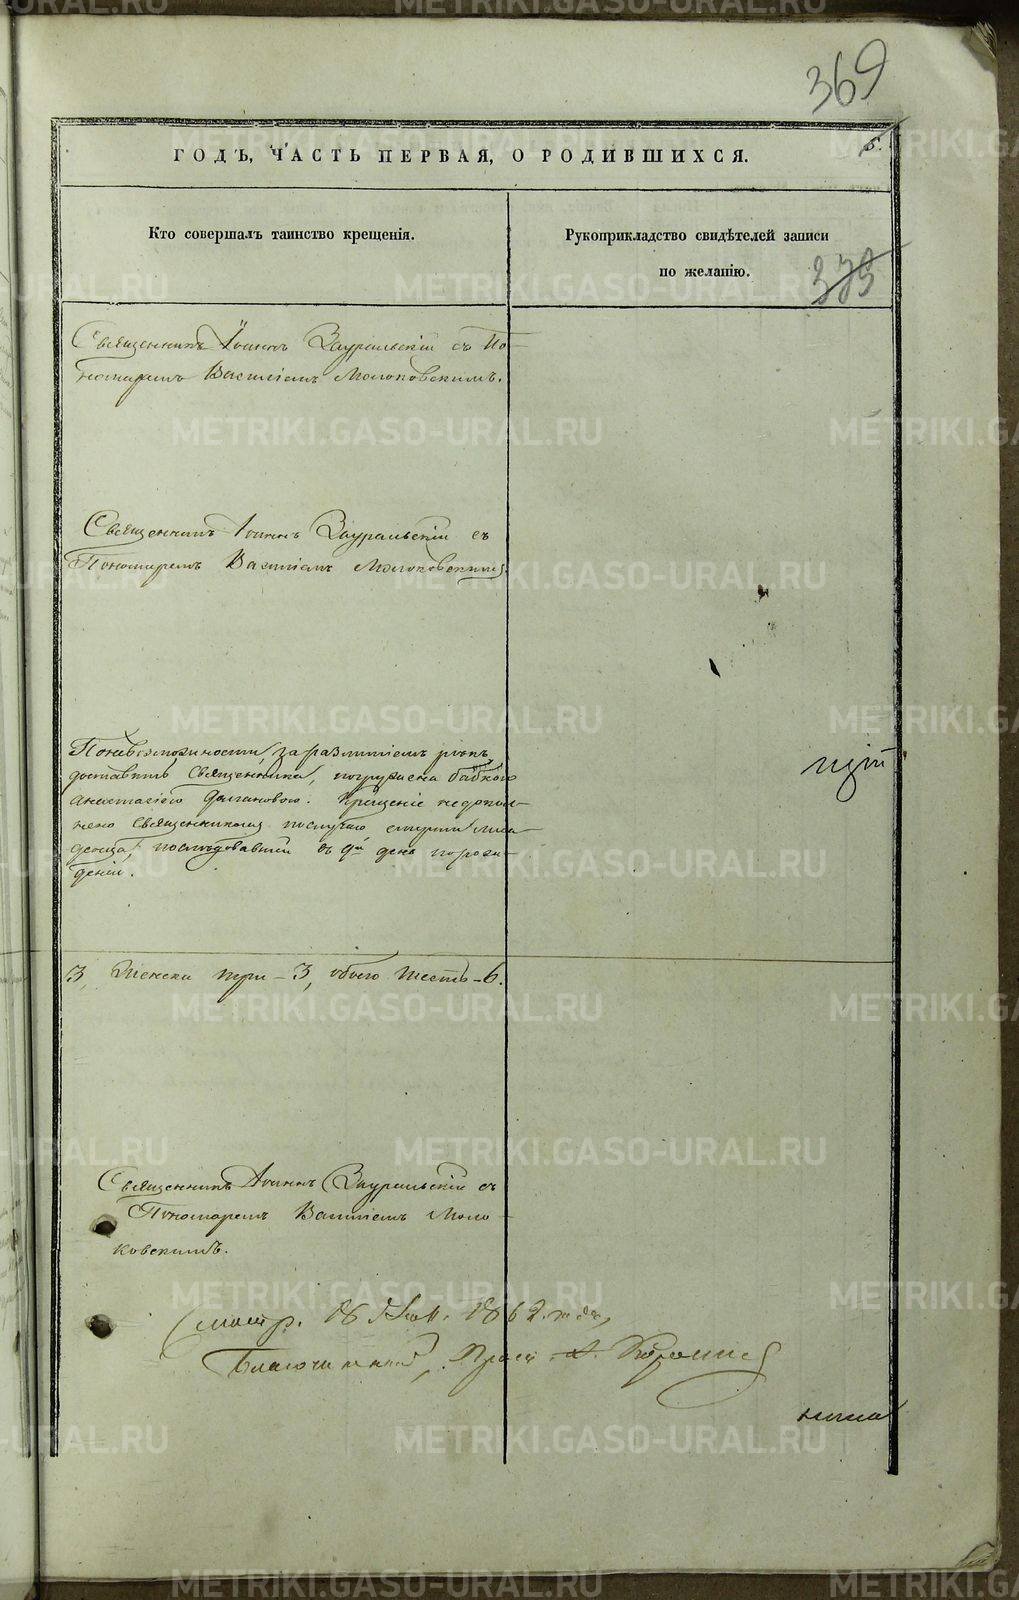 369
5.
ГОДЪ, ЧАСТЬ ПЕРВАЯ, О РОДИВШИХСЯ.
Кто совершалъ таинство крещенія.
Рукоприкладство свидѣтелей записи
по желанію.
373
Священникъ Іоаннъ Зауральскій съ По-
номаремъ Василіемъ Молоковскимъ.
Священникъ Іоаннъ Зауральскій съ
Пономаремъ Василіемъ Молоковскимъ
По невозможности, за разлитіемъ рѣкъ,
доставить Священника, погружена бабкою
Анастасіею Фалановою. Крещеніе не допол-
нено Священникомъ по случаю смерти мла-
денца, послѣдовавшей въ 9й день по рож-
деніи.
3, Женска три - 3, обоего шесть - 6.
Священникъ Іоаннъ Зауральскій съ
Пономаремъ Василіемъ Моло-
ковскимъ.
Смотр. 1862 года,
Благочинный,
METRIKI.GASO-URAL.RU